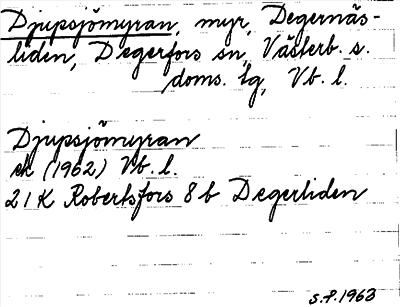 Djupsjömyran, myr, Degernäs-
liden, Degerfors sn, Västerb. s.
doms. lg, Vb. l.
Djupsjömyran
ek (1962) Vb. l.
21K Robertsfors 8 b Degerliden
S.P. 1963